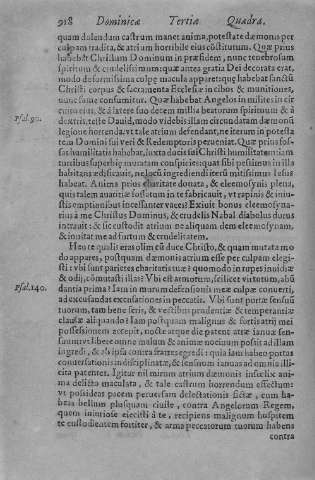 918 Dominicæ Tertiæ Quadra.
quam dolendum castrum manet anima, potestate dæmonis per
culpam tradita, & atrium horribile eius cōstitutum. Quæ prius
habebāt Christum Dominum in præsidem, nunc tenebrosum
spiritum & crudelissimum: quæ antea gratia Dei decorata erat,
modo deformissima culpæ macula apparet: quæ habebat sanctū
Christi corpus & sacramenta Ecclesiæ in cibos & munitiones,
nunc fame consumitur. Quæ habebat Angelos in milites in cir
cuitu eius, & à latere suo decem millia beatorum spirituum & à
Psal. 90. dextris, teste Dauid, modo videbis illam circundatam dæmonū
legione horrenda: vt tale atrium defendant, ne iterum in potesta
tem Domini sui veri & Redemptoris perueniat. Quæ prius fos-
sas humilitatis habebat, iuxta
turibus superbiæ mutatam conspicies: quas sibi pessimus in illa
habitans ædificauit, ne locū ingrediendi iterū mitissimus Iesus
habeat. Anima prius charitate donata, & eleemosynis plena,
quis talem auaritiæ fossatum in te fabricauit, vt rapinis & iniu-
stis emptionibus incessanter vaces? Exiuit bonus eleemosyna-
rius à me Christus Dominus, & crudelis Nabal diabolus durus
intrauit: & sic custodit atrium ne aliquam dem eleemosynam,
& inuitat me ad furtum & crudelitatem.
Heu te qualis eras olim cū duce Christo, & quam mutata mo
do appares, postquam dæmonis atrium esse per culpam elegi-
sti: vbi sunt parietes charitatis tuæ? quomodo in rupes inuidiæ
& odij, cōmutasti illas? Vbi est armorum, scilicet virtutum, abū
Psal. 140. dantia prima? Iam in murum defensionis meæ culpæ conuerti,
ad excusandas excusationes in peccatis. Vbi sunt portæ sensuū
tuorum, tam bene seris, & vectibus prudentiæ & temperantiæ
clausæ aliquando? Iam postquam malignus & fortis atrij mei
possessionem accepit, nocte atque die patent atriæ ianuæ sen-
suum: vt libere omne malum & animæ nociuum possit ad illam
ingredi, & ab ipsa contra fratres egredi: quia iam habeo portas
conuersationi indisciplinatæ, & sensuum ianuas ad omnia illi-
cita patentes. Igitur nil mirum atrium dæmonis infœlix ani-
ma delicto maculata, & tale castrum horrendum effectum:
vt possideas pacem peruersam delectationis fictæ, cum ha-
beas bellum plusquam ciuile, contra Angelorum Regem,
quem iniuriose eiecisti à te, recipiens malignum hospitem
te custodientem fortiter, & arma peccatorum tuorum habens
contra